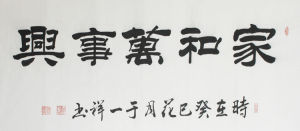 家和萬事興
時在癸巳花月于一祥书